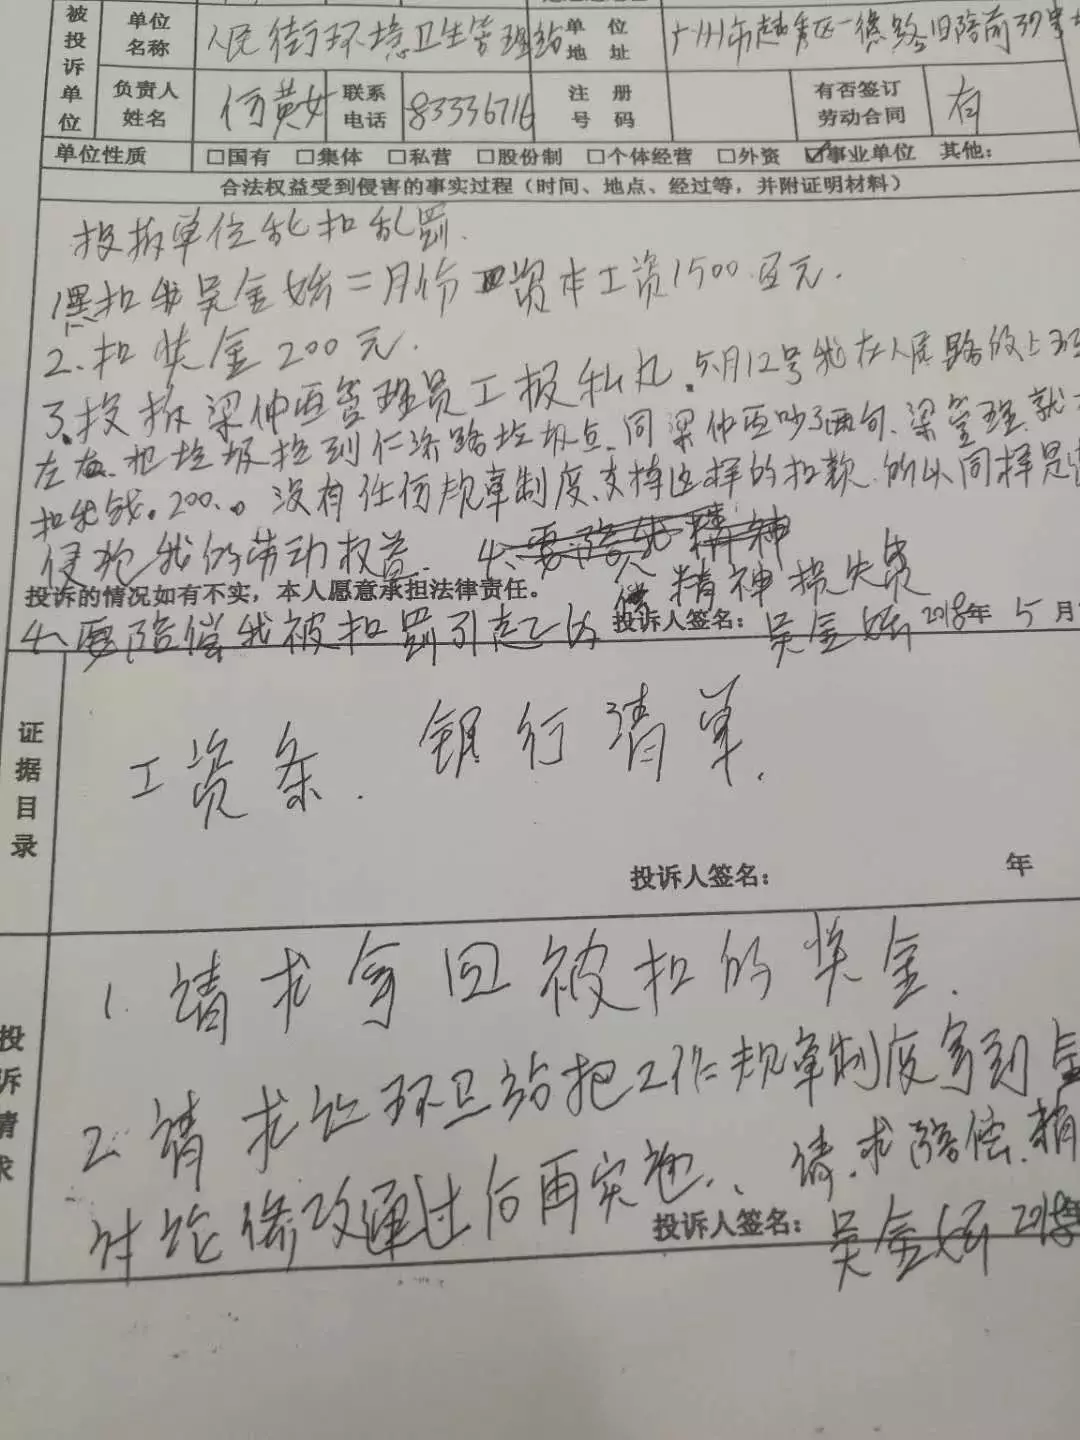 被投诉单位 单位名称 人民街环境卫生管理站 单位地址 广州市越秀区一德路旧部前39号
负责人姓名 何黄女 联系电话 83336716 注册号码 有否签订劳动合同 有
单位性质 □国有 □集体 □私营 □股份制 □个体经营 □外资 ☑事业单位 其他:
合法权益受到侵害的事实过程（时间、地点、经过等，并附证明材料）
投拆单位乱扣乱罚.
1.黑扣我吴金 二月份 资本工资1500 元.
2.扣奖金200元.
3.投拆梁仲 管理员工报私 .5月12号我在人民路的上班
左右.把垃圾 到仁济路垃圾点.同梁仲 吵了两句.梁管理.就
扣我钱.200... 没有任何规章制度.支持这样的扣款.所以同样是
侵犯我的劳动权益. 4、要陪 我精神
投诉的情况如有不实，本人愿意承担法律责任。 精神损失费
4、要陪偿我被扣罚引起 的 投诉人签名: 吴金 2018年 5月
证据目录 工资条. 银行清单.
投诉人签名: 年
投诉请求 1.请求拿回被扣的奖金.
2.请求 环卫站把工作规章制度 到
讨论修改通过后再实施.、请.求陪偿.精
投诉人签名: 吴金 2018年